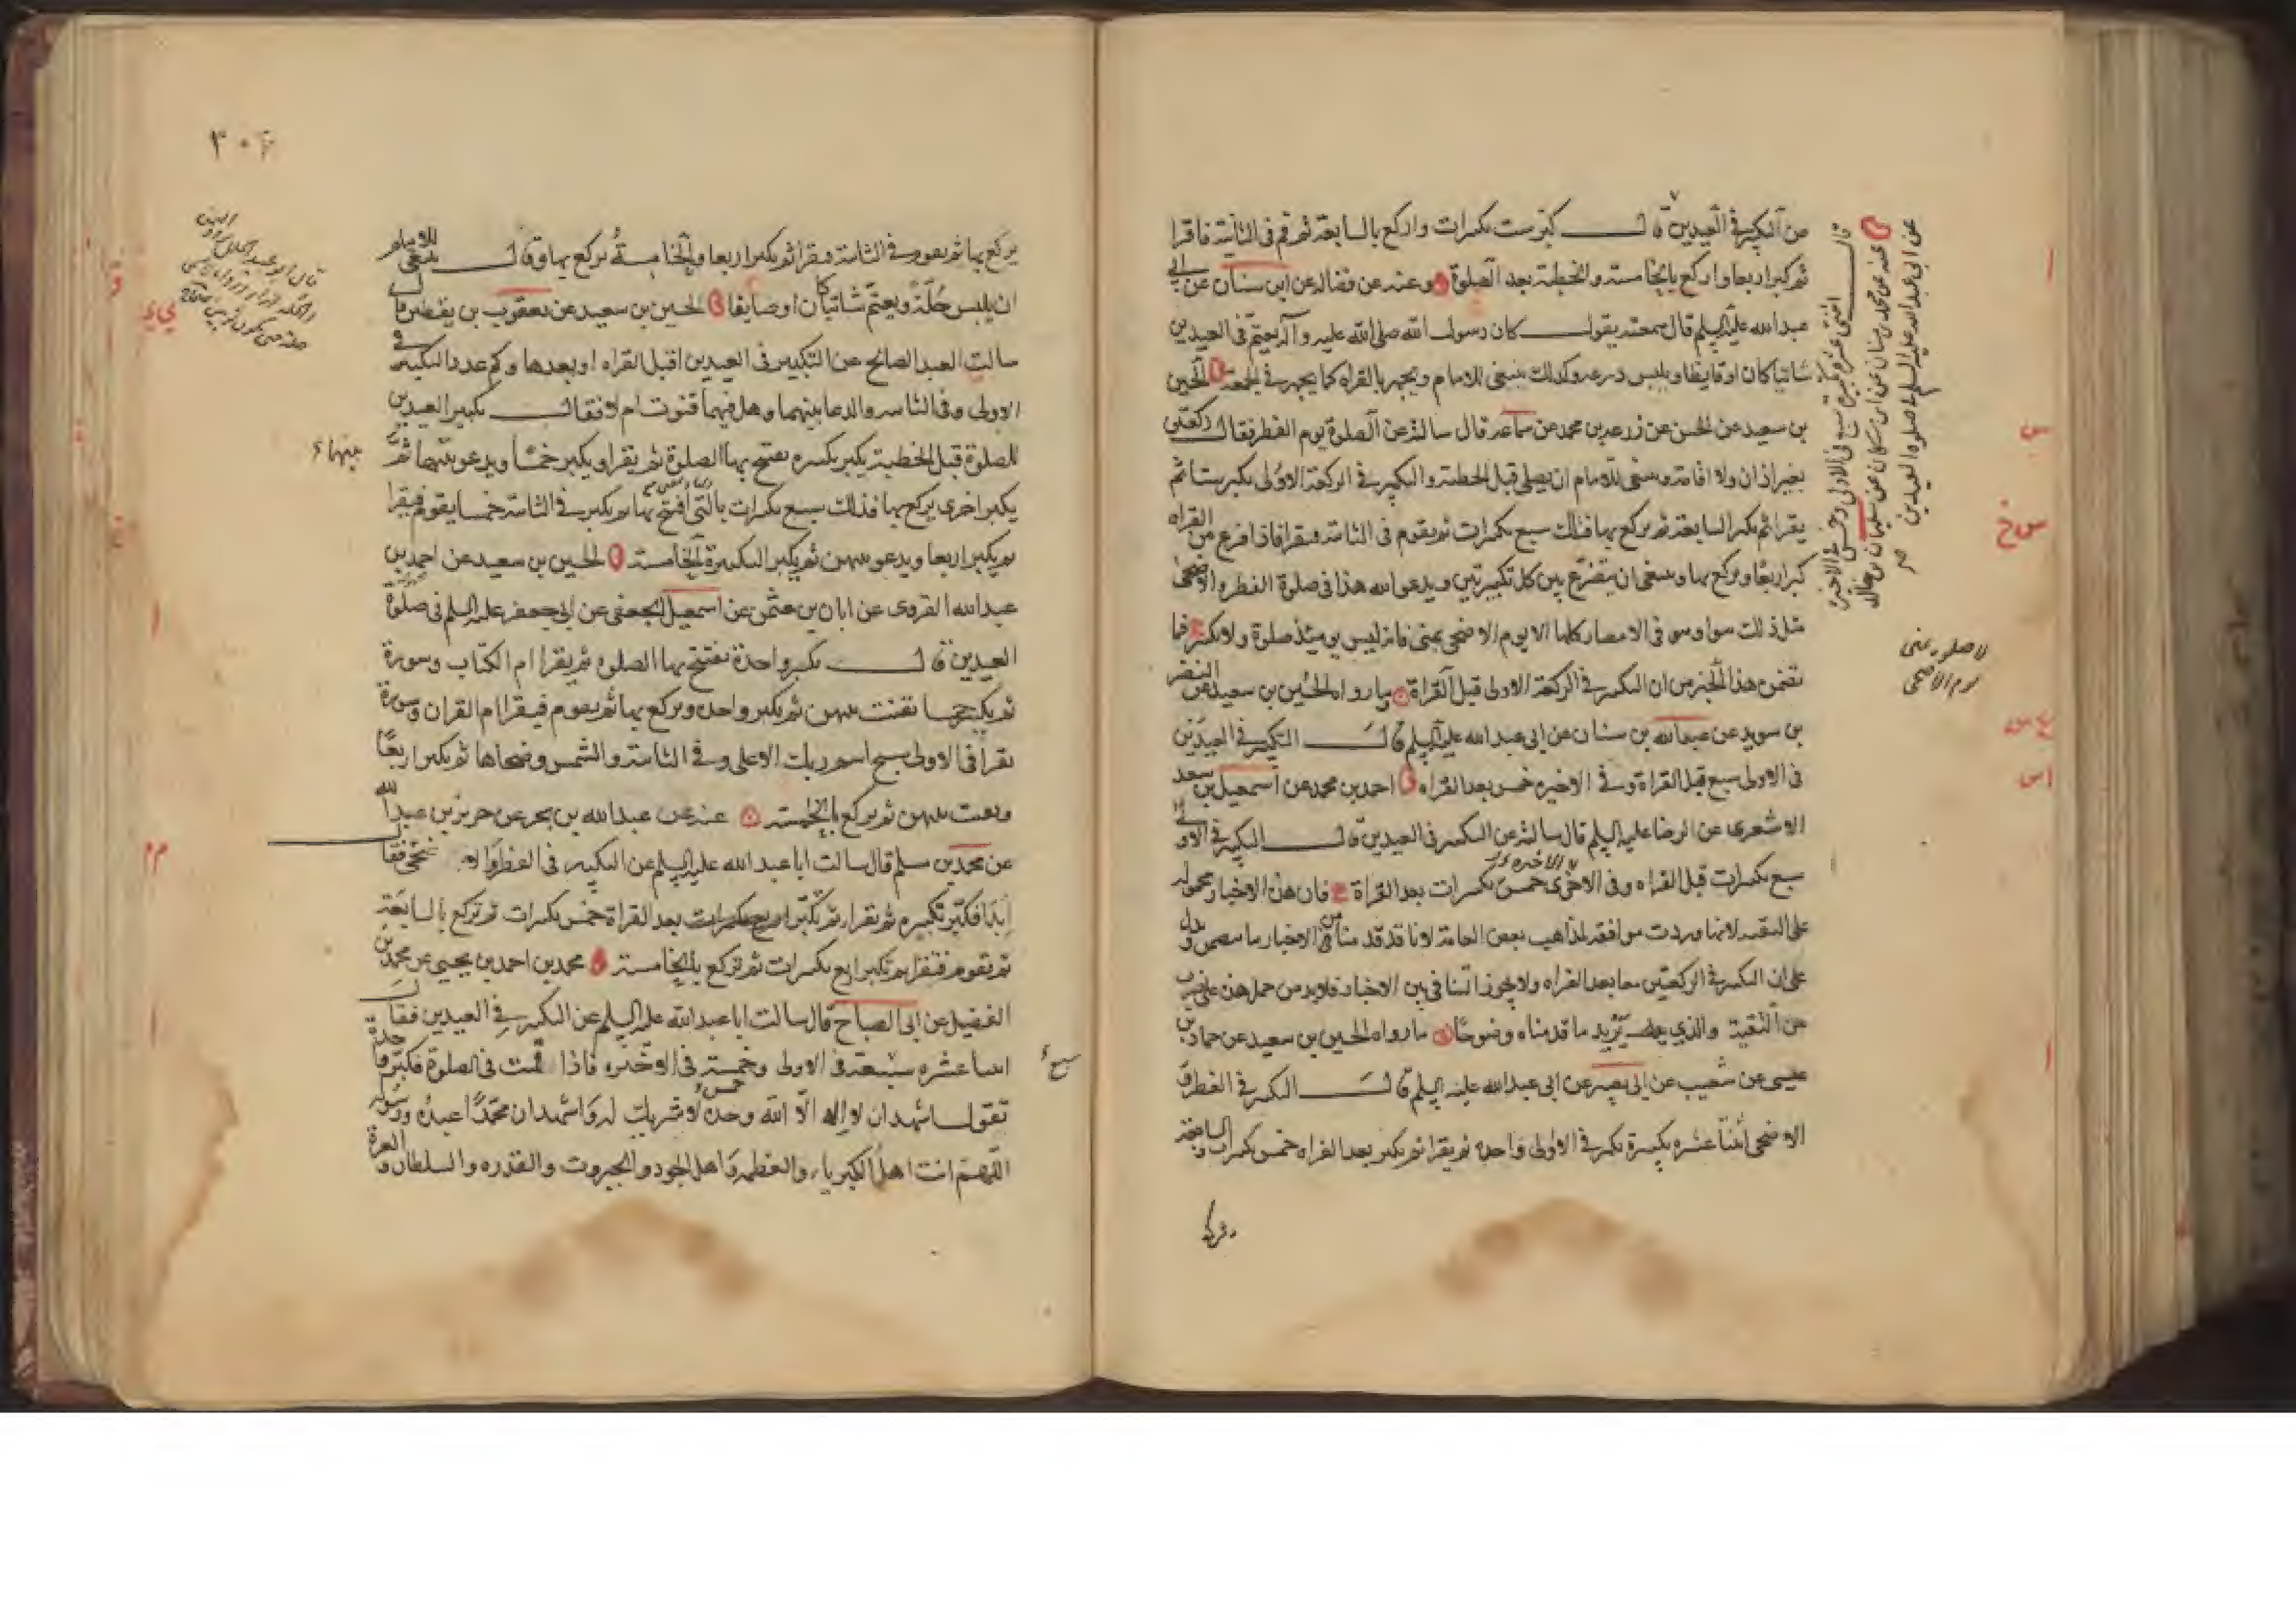 عن التكبير في العيدين قال كبر ست تكبيرات واركع بالسابعة ثم قم في الثانية فاقرا
ثم كبر اربعا واركع بالخامسة والخطبة بعد الصلوة وعنه عن فضاله عن ابن سنان عن ابي
عبد الله عليه السلم قال سمعته يقول كان رسول الله صلى الله عليه وآله يعتم في العيدين
شاتيا كان او قايظا ويلبس درعه وكذلك ينبغي للامام ويجهر بالقراه كما يجهر في الجمعة الحسين
بن سعيد عن الحسن عن زرعه بن محمد عن سماعه قال سالته عن الصلوة يوم الفطر فقال ركعتين
بغير اذان ولا اقامة وينبغي للامام ان يصلي قبل الخطبة والتكبير في الركعة الاولى يكبر ستا ثم
يقرا ثم يكبر السابعة ثم يركع بها فتلك سبع تكبيرات ثم يقوم في الثانية فيقرا فاذا فرغ من القراه
كبر اربعا ويركع بها وينبغي ان يتضرع بين كل تكبيرتين ويدعو الله هذا في صلوة الفطر والاضحى
مثل ذلك سوا وهو في الامصار كلها الا يوم الاضحى بمنى فانه ليس يومئذ صلوة ولا تكبير فما
تضمن هذا الخبر من ان التكبير في الركعة الاولى قبل القراة وما رواه الحسين بن سعيد عن النضر
بن سويد عن عبد الله بن سنان عن ابي عبد الله عليه السلم قال التكبير في العيدين
في الاولى سبع قبل القراة وفي الاخيره خمس بعد القراه احمد بن محمد عن اسمعيل بن سعد
الاشعرى عن الرضا عليه السلم قال سالته عن التكبير في العيدين قال التكبير في الاولى
سبع تكبيرات قبل القراه وفي الاخرى خمس تكبيرات بعد القراة فان هذه الاخبار محموله
على التقيه لانها وردت موافقه لمذاهب بعض العامة لانا قد قدمنا من الاخبار ما تضمن ودل
على ان التكبير في الركعتين معا بعد القراه ولا يجوز التنافي بين الاخبار فلا بد من حمل هذه على ضرب
من التقية والذي يزيد ما قدمناه وضوحا ما رواه الحسين بن سعيد عن حماد بن
عيسى عن شعيب عن ابي بصير عن ابي عبد الله عليه السلم قال التكبير في الفطر و
الاضحى اثنتا عشره تكبيرة تكبر في الاولى واحده ثم يقرا ثم يكبر بعد القراه خمس تكبيرات والسابعة
قال اثنتى عشرة تكبيرة سبع في الاولى وخمس في الاخيرة
عنه عن محمد بن سنان عن ابن مسكان عن سليمان بن خالد
عن ابي عبد الله عليه السلم في صلوه العيدين
لا صلوه بمنى
يوم الاضحى
س
س خ
اس
٣٠٢
يركع بها ثم يقوم في الثانية فيقرا ثم يكبر اربعا والخامسة يركع بها وقال ينبغي للامام
ان يلبس حلة ويعتم شاتيا كان او صايفا الحسين بن سعيد عن يعقوب بن يقطين قال
سالت العبد الصالح عن التكبير في العيدين اقبل القراه او بعدها وكم عدد التكبير في
الاولى وفي الثانيه والدعا بينهما وهل فيهما قنوت ام لا فقال تكبير العيدين
للصلوة قبل الخطبة يكبر تكبيره يفتتح بها الصلوة ثم يقرا ويكبر خمسا ويدعو بينهما ثم
يكبر اخرى يركع بها فذلك سبع تكبيرات بالتي افتتح بها ثم يكبر في الثانية خمسا يقوم فيقرا
ثم يكبر اربعا ويدعو بينهن ثم يكبر التكبيرة الخامسة الحسين بن سعيد عن احمد بن
عبد الله القروى عن ابان بن عثمن عن اسمعيل الجعفي عن ابي جعفر عليه السلم في صلوة
العيدين قال يكبر واحدة يفتتح بها الصلوه ثم يقرا ام الكتاب وسورة
ثم يكبر خمسا يقنت بينهن ثم يكبر واحده ويركع بها ثم يقوم فيقرا ام القران وسورة
يقرا في الاولى سبح اسم ربك الاعلى وفي الثانية والشمس وضحاها ثم يكبر اربعا
ويقنت بينهن ثم يركع بالخامسة عنه عن عبد الله بن بحر عن حريز بن عبد الله
عن محمد بن مسلم قال سالت ابا عبد الله عليه السلم عن التكبير في الفطر والاضحى فقال
ابدا فكبر تكبيره ثم تقرا ثم تكبر بعد القراة خمس تكبيرات ثم تركع بالسابعة
ثم تقوم فتقرا ثم تكبر اربع تكبيرات ثم تركع بالخامسة محمد بن احمد بن يحيى عن محمد بن
الفضيل عن ابي الصباح قال سالت ابا عبد الله عليه السلم عن التكبير في العيدين فقال
اثنتا عشره سبعة في الاولى وخمسة في الاخيره فاذا قمت في الصلوة فكبر واحدة
تقول اشهد ان لا اله الا الله وحده لا شريك له واشهد ان محمدا عبده ورسوله
اللهم انت اهل الكبرياء والعظمه واهل الجود والجبروت والقدره والسلطان والعزة
بينهما
سبع